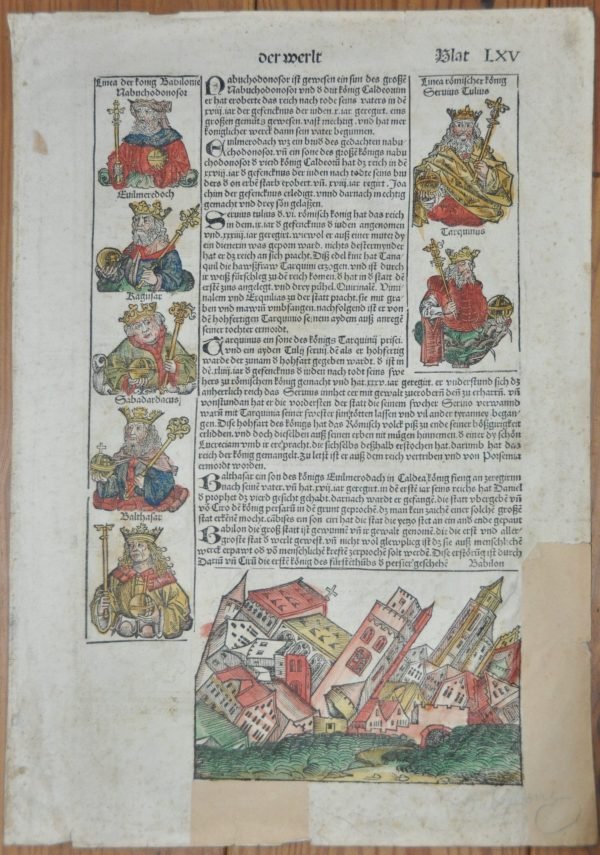 der werlt
Blat LXV
Linea der konig Babilonie
Nabuchodonosor
Euilmeredoch
Ragusar
Sabadardacus
Balthasar
Nabuchodonosor ist gewesen ein sun des großē
Nabuchodonosor vnd d drit kònig Caldeorum
er hat eroberte das reich nach tode seins vaters in dē
xviij. iar der gefencknus der iuden .x. iar geregirt. eins
großen gemüts gewesen. vast mechtig. vnd hat mer
koniglicher werck dann sein vater begunnen.
Euilmerodach wz ein brud des gedachten nabu
chodonosor. vñ ein sone des großē königs nabu
chodonosor d vierd kònig Caldeorū hat dz reich in dē
xxviij. iar d gefencknus der iuden nach tode seins bru
ders d on erbē starb erobert. vñ. xviij. iar regirt. Joa
chim der gefencknus erledigt. vnnd darnach mechtig
gemacht vnd frey gelassen.
Seruius tulius d. vi. römisch konig hat das reich
in dem .ix. iar d gefencknus d iuden angenomen
vñ .xxxiiij. iar geregirt. wiewol er auß einer muter dy
ein dienerin was geporn ward. nichts destermynder
hat er dz reich an sich pracht. Diß edel kint hat Tana
quil die hawßfraw Tarquini erzogen. vnd ist durch
ir weiß fürschleg zu dē reich komen. d hat in d statt dē
erstē zinß angelegt. vnd drey pühel. Quirinalē. Vimi
nalem vnd Exquilias zu der statt pracht. sie mit gra
ben vnd mawrn vmbfangen. nachfolgend ist er von
dē hohfertigen Tarquinio seinem aydem auß anregē
seiner tochter ermordt.
Tarquinius ein sone des königs Tarquinij prisci.
vnd ein ayden Tulij seruij. dē als er hohfertig
warde der zunam d hohfart gegeben wardt. d ist in
dē .xliiij. iar d gefencknus d iuden nach tod seins swe
hers zu römischem könig gemacht vnd hat .xxxv. iar geregirt. er vnderstund sich dz
vonstundan hat er die vordersten der statt die seinem sweher Seruio verwandt
warn mit Tarquinia seiner swester
gen. Dise hohfart des königs hat das Römisch volck piß zu ende seiner bößwirigkeit
erlidden. vnd doch dieselben auß seinen erben nit mügen hinnemen.
der könig gemangelt. Zu letst ist er auß dem reich vertriben vnd von Porsenna
ermordt worden.
Balthasar ein son des königs Euilmerodach in Caldea könig fieng an zeregirn
nach seinē vater. vñ hat .xvij. iar geregirt. in dē erstē iar seins reichs hat Daniel
d prophet dz vierd gesicht gehabt. darnach wardt er gefangē. die statt vbergebē vñ
võ Ciro dē könig persarū in dē grunt geprochē. dz man kein zaichē einer solchē großē
stat erkēnē mocht.
Babilon die groß statt ist gewunnē vñ ir gewalt genomē. die die erst vnd aller
gröste statt d werlt gewest. vñ nicht wol glewplich ist dz sie auß menschlichē
werck erpawt od võ menschlichē kreftē zerprochē solt werdē. Dise erstörūg ist durch
Dariū vñ Cirū die erstē könig des fürstēthūbs d persier geschehē Babilon
Linea römischer könig
Seruius Tulius
Tarquinus